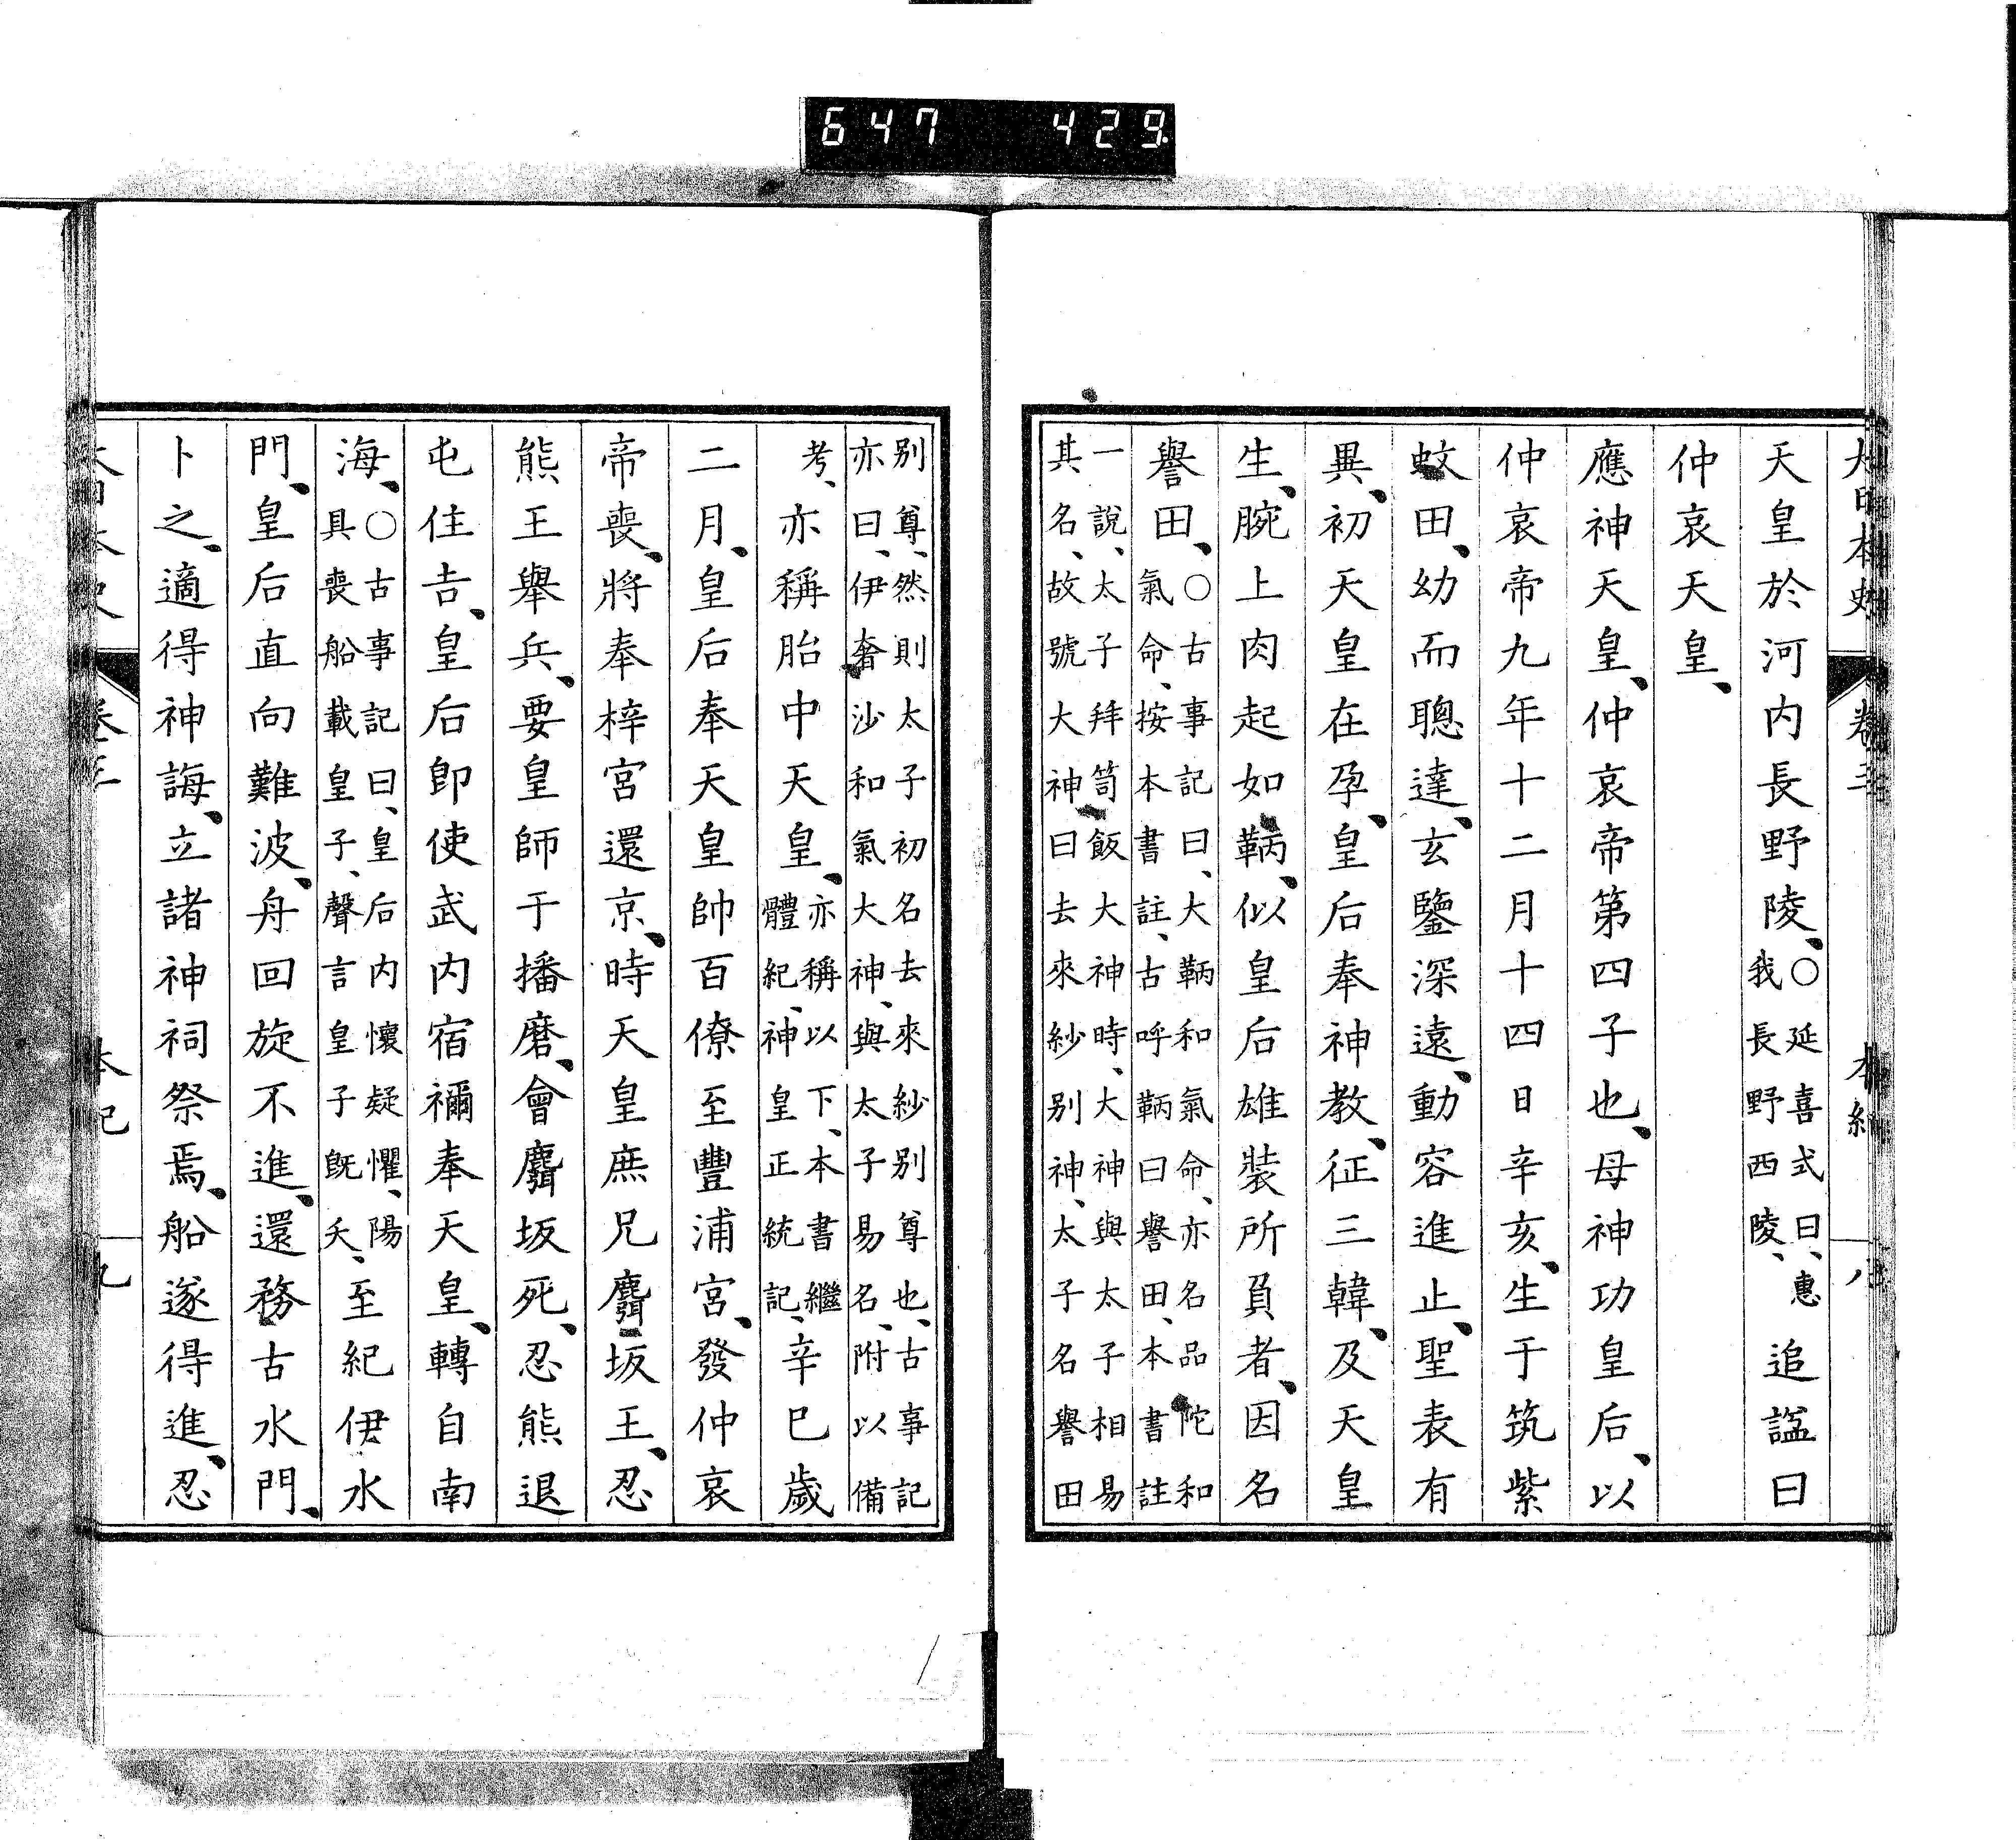 647 429.
大日本史 卷三 本紀 八
天皇於河内長野陵、○延喜式曰、惠我長野西陵、追諡曰
仲哀天皇、
應神天皇、仲哀帝第四子也、母神功皇后、以
仲哀帝九年十二月十四日辛亥、生于筑紫
蚊田、幼而聰達、玄鑒深遠、動容進止、聖表有
異、初天皇在孕、皇后奉神教、征三韓、及天皇
生、腕上肉起如鞆、似皇后雄裝所負者、因名
譽田、○古事記曰、大鞆和氣命、亦名品陀和氣命、按本書註、古呼鞆曰譽田、本書註
一說、太子拜笥飯大神時、大神與太子相易其名、故號大神曰去來紗別神、太子名譽田
別尊、然則太子初名去來紗別尊也、古事記亦曰、伊奢沙和氣大神、與太子易名、附以備
考、亦稱胎中天皇、亦稱以下、本書繼體紀、神皇正統記、辛巳歲
二月、皇后奉天皇帥百僚至豐浦宮、發仲哀
帝喪、將奉梓宮還京、時天皇庶兄麛坂王、忍
熊王舉兵、要皇師于播磨、會麛坂死、忍熊退
屯住吉、皇后卽使武内宿禰奉天皇、轉自南
海、○古事記曰、皇后内懷疑懼、陽具喪船載皇子、聲言皇子旣夭、至紀伊水
門、皇后直向難波、舟回旋不進、還務古水門、
卜之、適得神誨、立諸神祠祭焉、船遂得進、忍
大日本史 卷三 本紀 九